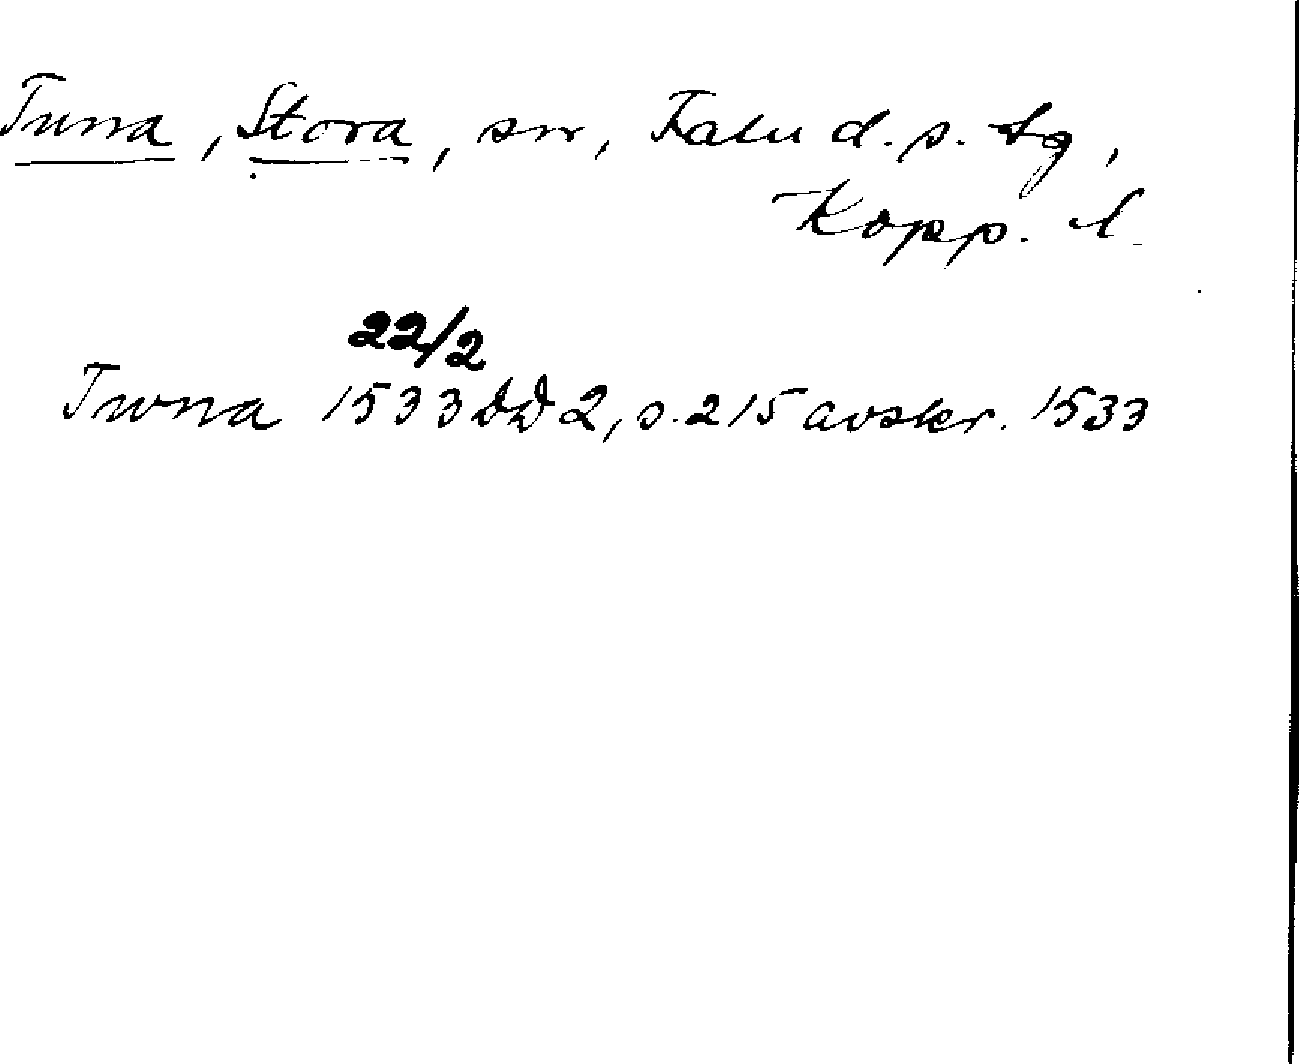 Tuna, Stora, sn, Falu d. s. tg,
Kopp. l.
22/2
Twna 1533 DD 2, s. 215 avskr. 1533